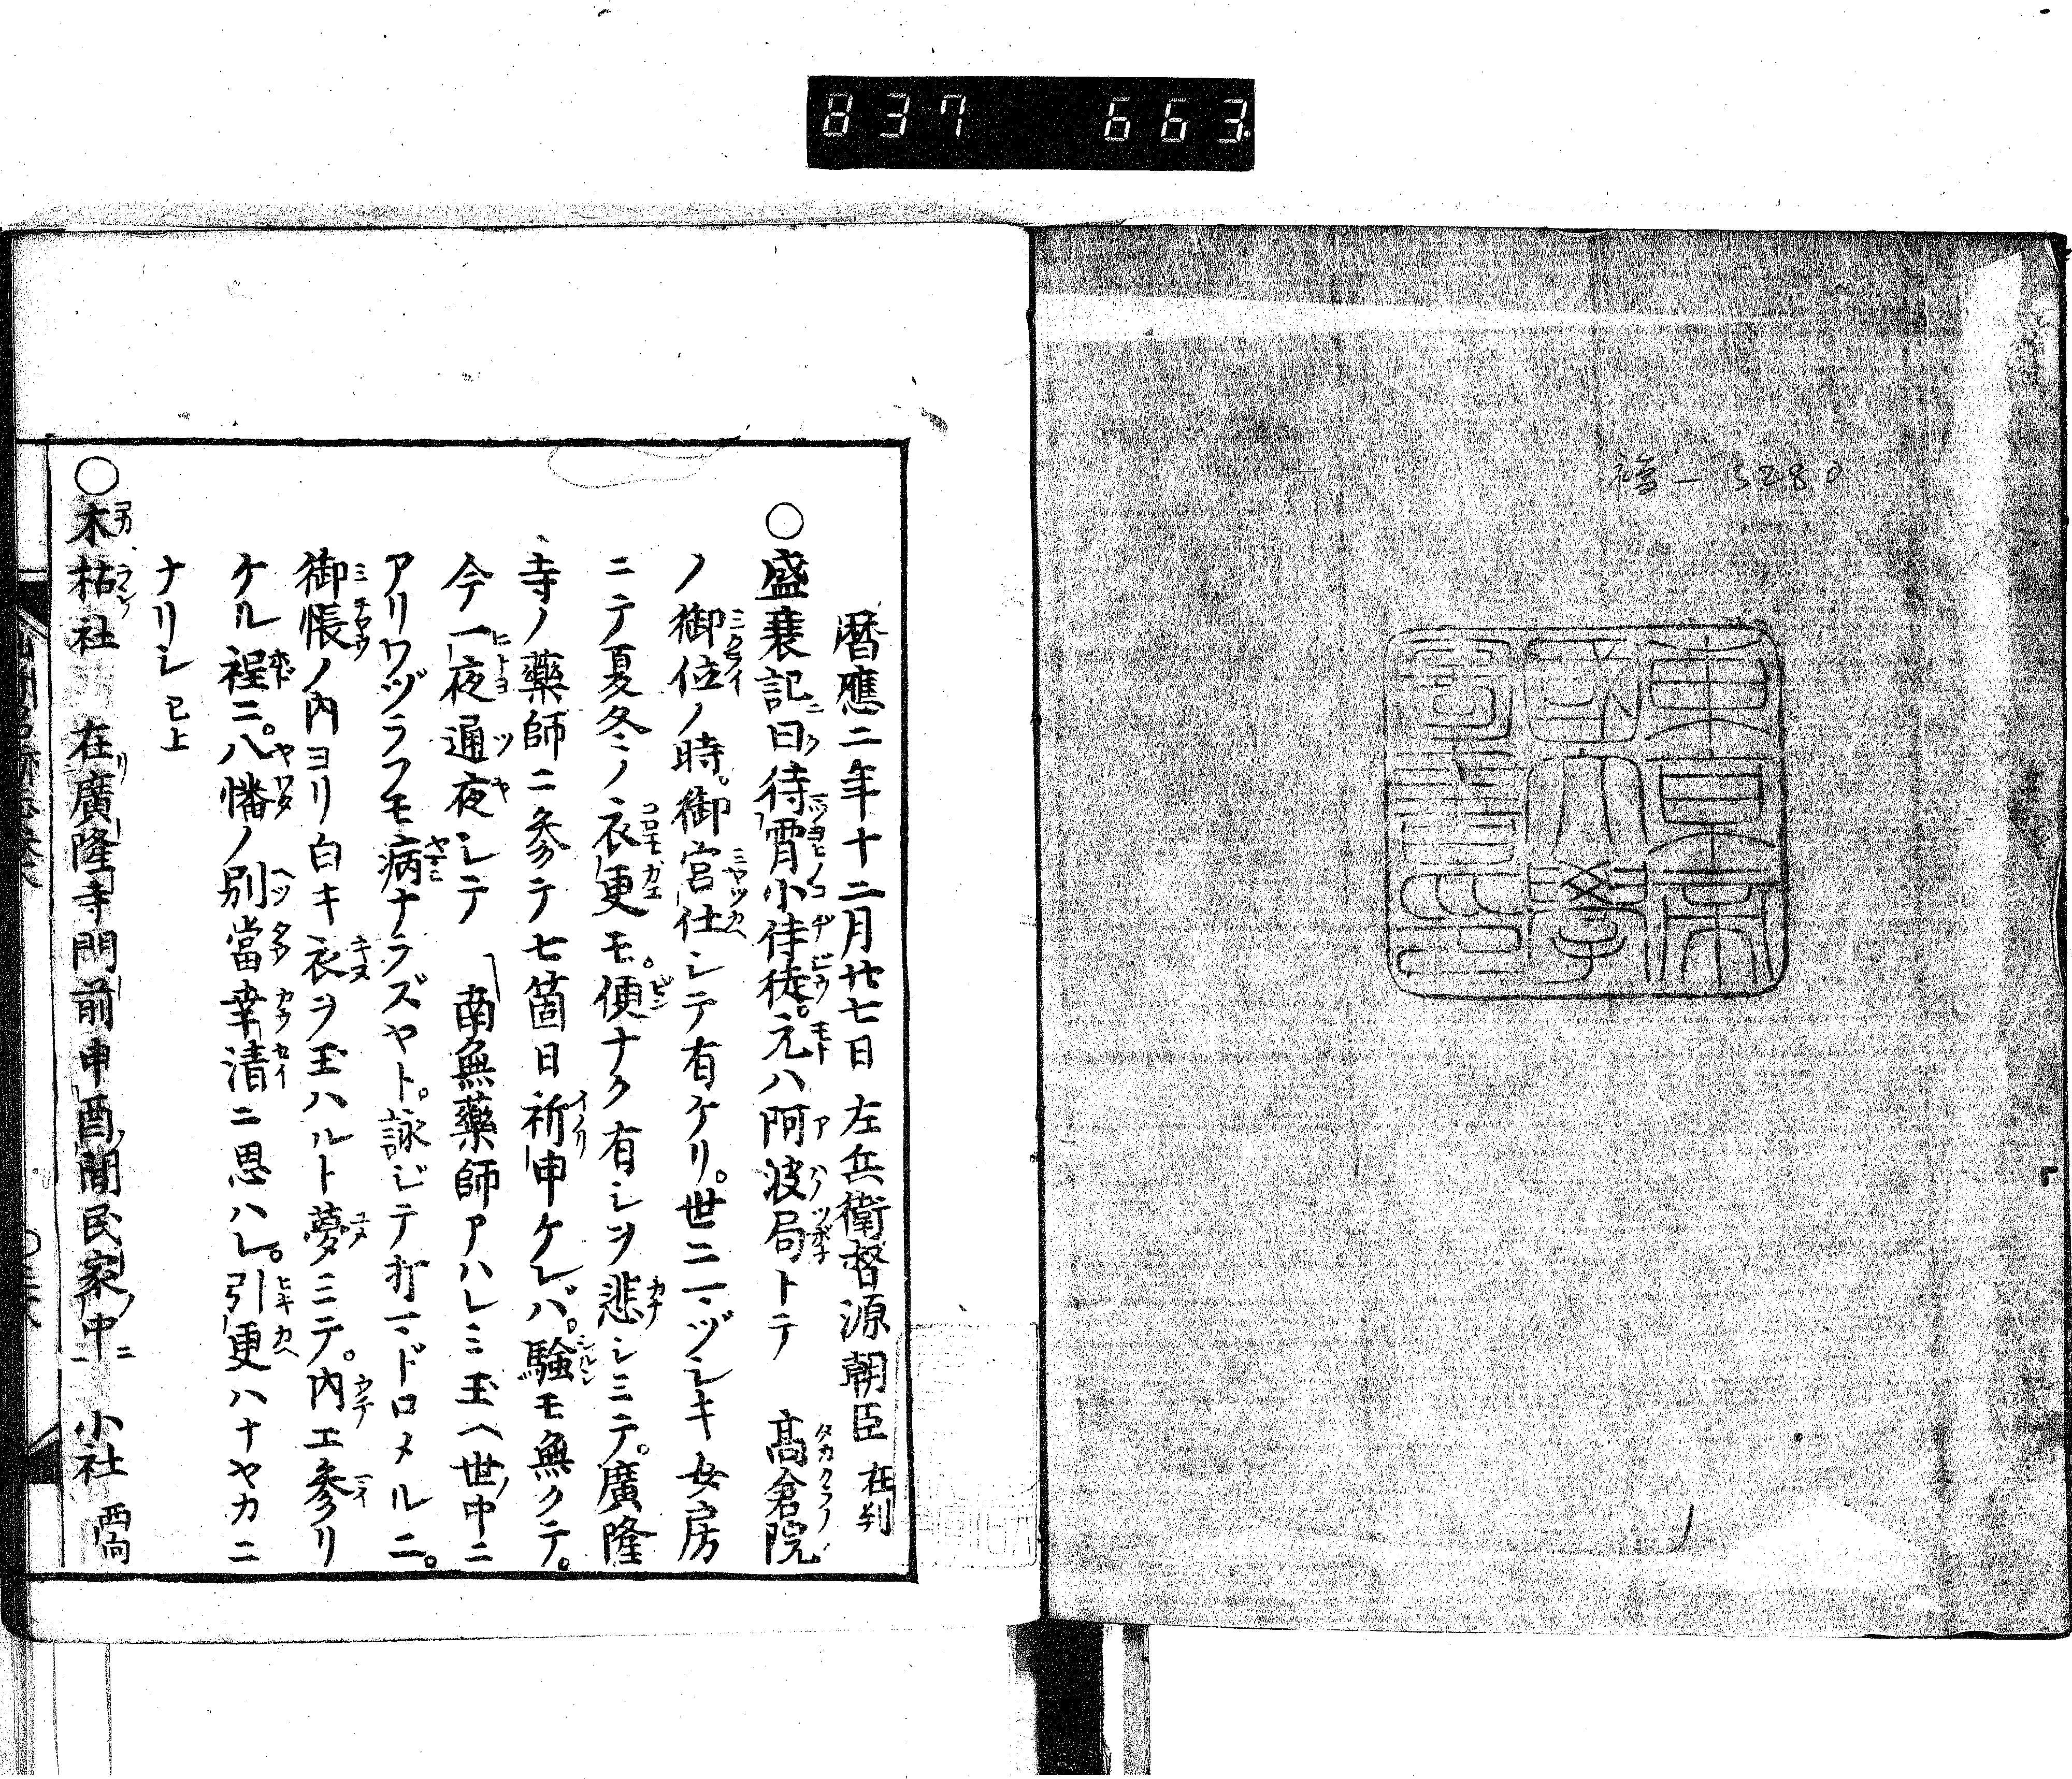 837 663
禅一3280
東京
帝国大学
図書印
暦應二年十二月廿七日 左兵衛督源朝臣 在判
○盛衰記曰待宵小侍徒。元ハ阿波局トテ 髙倉院
ノ御位ノ時。御宮仕シテ有ケリ。世ニマヅシキ女房
ニテ夏冬ノ衣更モ。便ナク有シヲ悲シミテ。廣隆
寺ノ藥師ニ参テ七箇日祈申ケレバ。驗モ無クテ。
今一夜通夜シテ 南無藥師アハレミ玉ヘ世中ニ
アリワヅラフモ病ナラズヤト。詠ジテ打マドロメルニ。
御帳ノ内ヨリ白キ衣ヲ玉ハルト夢ミテ。内エ参リ
ケル程ニ。八幡ノ別當幸清ニ思ハレ。引更ハナヤカニ
ナリシ 已上
○木枯社 在廣隆寺門前申酉間民家中 小社 西向